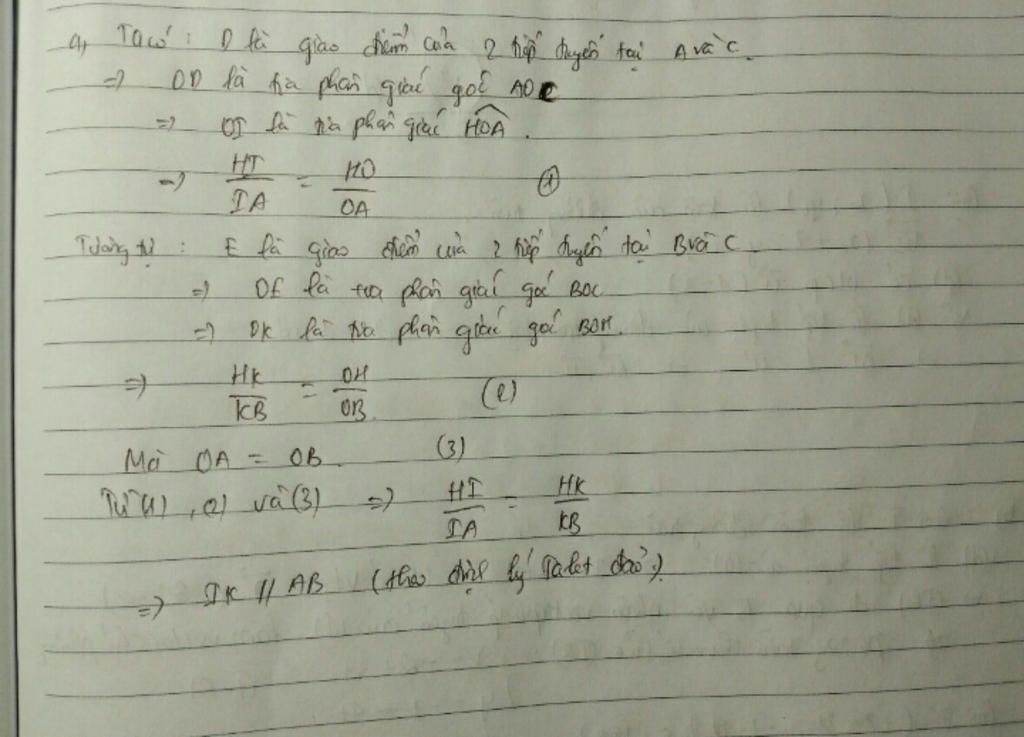 a, Ta có : D là giao điểm của 2 tiếp tuyến tại A và C.
=> OD là tia phân giác góc AOC
=> OI là tia phân giác HOA.
=> HI/IA = HO/OA (1)
Tương tự : E là giao điểm của 2 tiếp tuyến tại B và C
=> OE là tia phân giác góc BOC
=> OK là tia phân giác góc BOH.
=> HK/KB = OH/OB (2)
Mà OA = OB. (3)
Từ (1), (2) và (3) => HI/IA = HK/KB
=> IK // AB (theo định lý Talet đảo).